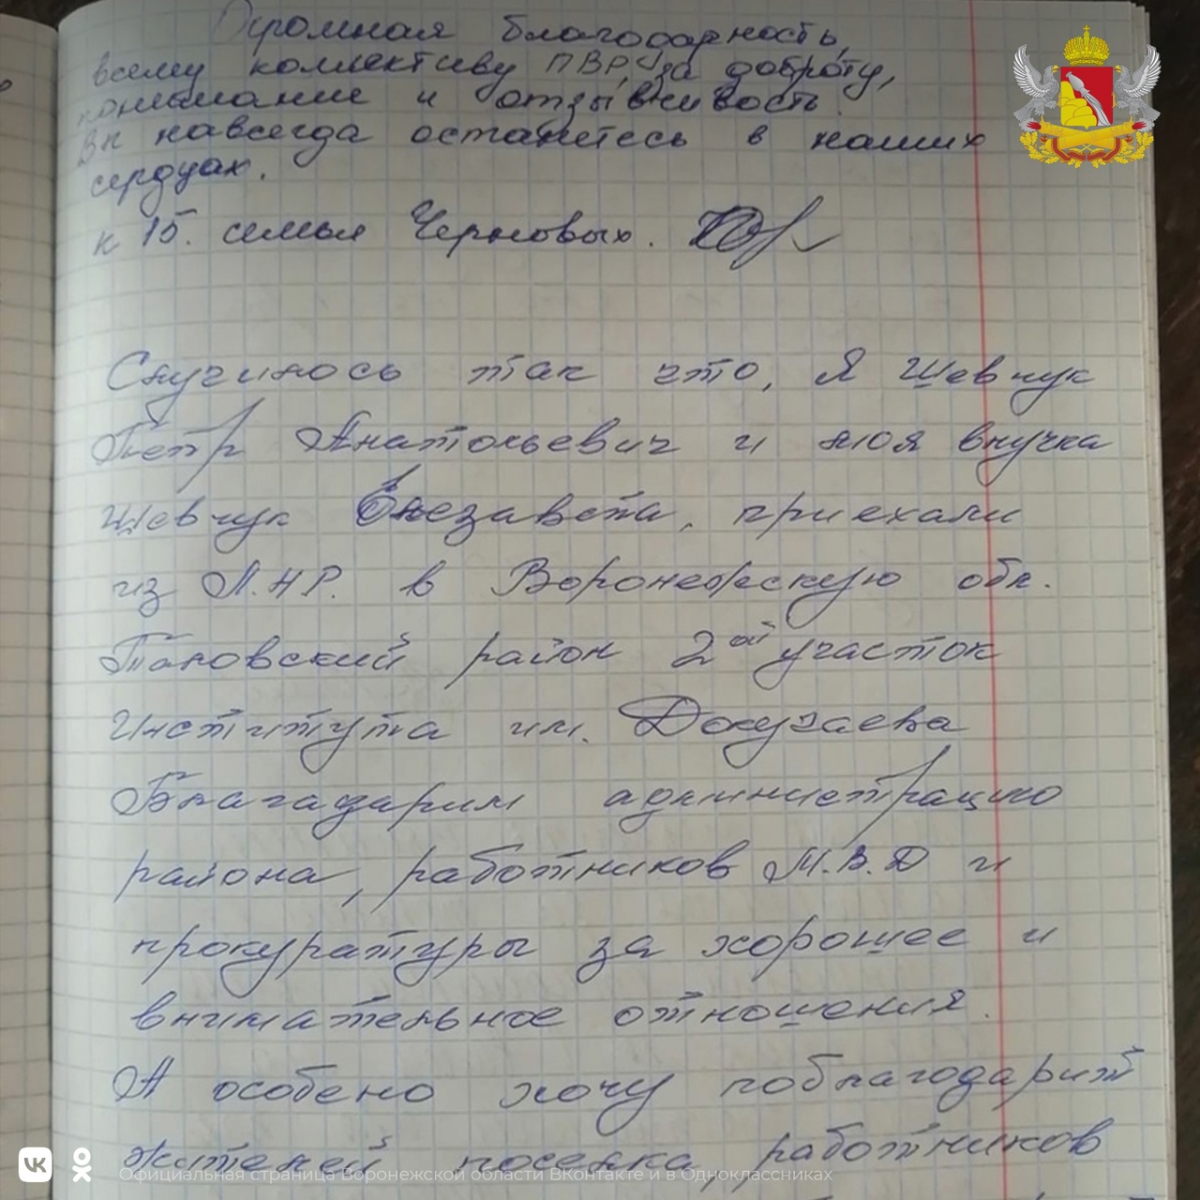 Огромная благодарность,
всему коллективу ПВР, за доброту,
понимание и отзывчивость.
Вы навсегда останетесь в наших
сердцах.
к 15. семья Черновых.
Случилось так что, Я Шевчук
Петр Анатольевич и моя внучка
Шевчук Елезавета, приехали
из Л.Н.Р. в Воронежскую обл.
Таловский район 2ой участок
Института им. Докучаева
Благадарим администрацию
района, работников М.В.Д и
прокуратуры за хорошее и
внимательное отношения.
А особено хочу поблагодарит
жителей поселка работников
Официальная страница Воронежской области ВКонтакте и в Одноклассниках